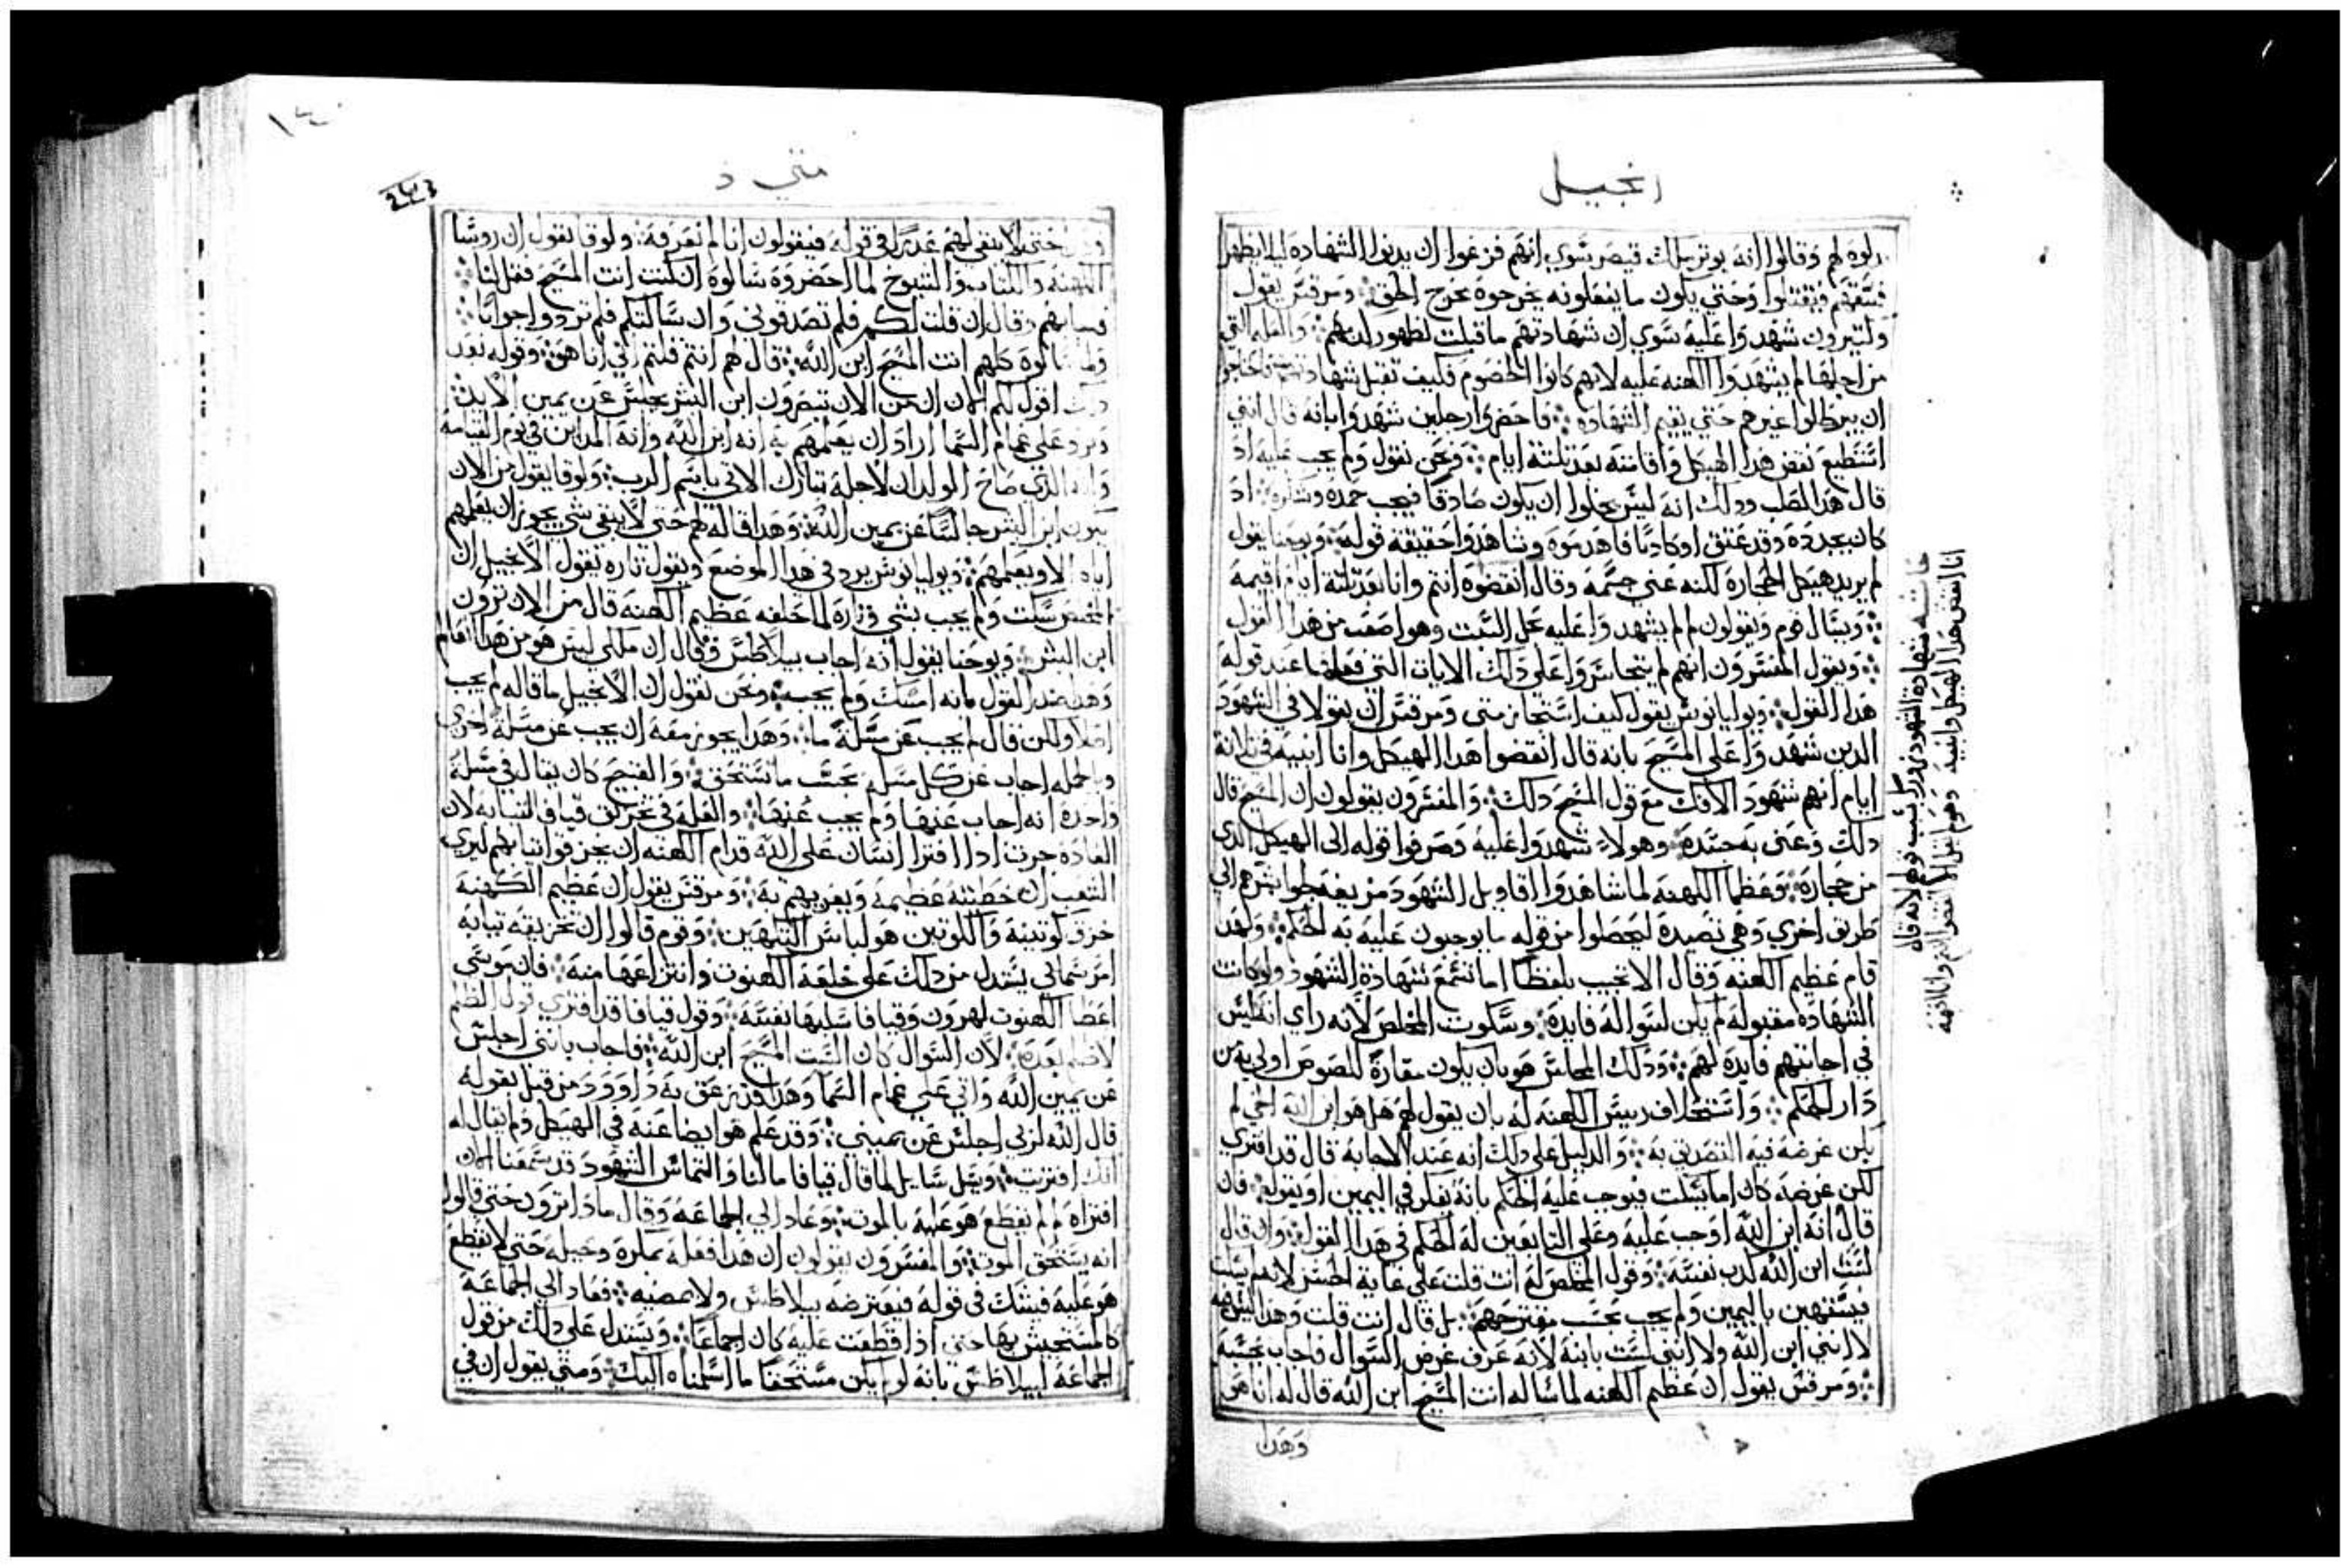 انجيل
وقالوا انه يوتر ملك قيصر سوي انهم فزعوا ان يدنوا الشهاده ليلا يظهر
فيقتلوا وحتي يكون ما يفعلونه يخرجوه مخرج الحق ومرقس يقول
وكتيرون شهدوا عليه سوي ان شهادتهم ما قبلت لظهور والعله التي
من اجلها لم يشهدوا الكهنه عليه لانهم كانوا الخصوم فكيف تقبل شهادتهم
ان غيرهم حتي يقيم الشهاده فاحضروا رجلين شهدوا بانه قال انني
استطيع نقض هدا الهيكل واقامته بعد تلتة ايام ونحن نقول ولم يجب عليه اد
قال هدا الصلب ودلك انه ليس يخلوا ان يكون صادقا فيجب حمده وشكره اد
كان بعد وقد عتق او كادبا فاهد وشاهدوا حقيقة قوله ويوحنا يقول
لم يريد هيكل الحجاره لكنه عني جسمه وقال انقضوه انتم وانا بعد تلتة ايام اقيمه
ويسال قوم ويقولون لم لم يشهدوا عليه بحل السبت وهو اصعب من هدا القول
ويقول المفسرون انهم لم يتجاسروا علي دلك الايات التي فعلها عند قوله
هدا القول ويوليانوس يقول كيف استجاز متى ومرقس ان يقولا في الشهود
الدين شهدوا علي المسيح بانه قال انقضوا هدا الهيكل وانا ابنيه في تلاتة
ايام انهم شهود الافك مع قول المسيح دلك والمفسرون يقولون ان المسيح قال
دلك وعنى به جسده وهولاء شهدوا عليه وصرفوا قوله الى الهيكل الدي
من حجاره وعظما الكهنه لما شاهدوا اقاويل الشهود
طريق اخري وهي تصيده ليحصلوا من قوله ما يوجبون عليه به الحكم ولهدا
قام عظيم الكهنه وقال الا تجيب بلفظا اما تسمع شهادة الشهود ولو كانت
الشهاده مقبوله لم يكن لسواله فايده وسكوت المخلص لانه راي ان ليس
في اجابتهم فايده لهم ودلك المجلس هو بان يكون مغارة للصوص اولي به من
دار الحكم واستحلاف رييس الكهنه له بان يقول لهم هل هو ابن الله الحي لم
يكن غرضه فيه التصديق به والدليل علي دلك انه عند الاجابه قال قد افتري
لكن غرضه كان اما يسكت فيوجب عليه الحكم بانه يفكر في اليمين او يقوله فان
قال انه ابن الله اوجب عليه وعلي التابعين له الحكم في هدا القول وان قال
لست ابن الله كدب نفسه وقول المخلص له انت قلت علي غاية الحسن
باليمين ولم يجب بحسب مقترحهم بل قال انت قلت وهدا
لا انني ابن الله ولا انني لست بابنه لانه عرف غرض السوال فاجاب بحسبه
ومرقس يقول ان عظيم الكهنه لما ساله انت المسيح ابن الله قال له انا هو
وهدا
حاشيه شهادة الشهود لانه قال
انا انقض هدا الهيكل وابنيه وهو لم يقل الا انقضوا انتم وانا اقيمه
متي
حتي لا يبقي لهم عدرا في قوله فيقولون اننا لم نعرفه ولوقا يقول ان روسا
الكهنه والكتاب والشيوخ لما احضروه سالوه ان كنت انت المسيح فقل لنا
وقال ان قلت لكم فلم تصدقوني وان سالتكم فلم تردوا جوابا
كلهم انت المسيح ابن الله قال لهم انتم قلتم اني انا هو وقوله بعد
اقول لكم ان من الان تبصرون ابن البشر يجلس عن يمين الايد
علي غمام السما اراد ان يعلمهم به انه ابن الله وانه المداين في يوم القيامه
وانه الدي صاح الولدان لاجله تبارك الاتي باسم الرب ولوقا يقول من الان
يكون ابن البشر جالسا عن يمين الله وهدا قاله لهم حتي لا يبقي شي يجوز ان يعلمهم
اياه الا ويعلمهم ويوليانوس يرد في هدا الموضع ويقول تاره يقول الانجيل ان
المخلص سكت ولم يجب بشي وتارة لما حلفه عظيم الكهنه قال من الان ترون
ابن البشر ويوحنا يقول انه اجاب بيلاطس وقال ان ملكي ليس هو من هدا العالم
القول بانه امسك ولم يجيب ونحن نقول ان الانجيل ما قاله لم يجب
اصلا ولكن قال لم يجب عن مسلة ما وهدا يجوز معه ان يجب عن مسلة اخري
وبالجمله اجاب عن كل مسله بحسب ما تستحق والقبيح كان يقال في مسلة
واحده انه اجاب عنها ولم يجب عنها والعله في تخريق قيافا تيابه لان
العاده جرت ادا افترا انسان علي الله قدام الكهنه ان يخرقوا تيابهم ليري
الشعب ان خطيته عظيمه ومرقس يقول ان عظيم الكهنه
خرق كوتينه والكوتين هو لباس الكهين وقوم قالوا ان تخريقه تيابه
امر شمالي يستدل من دلك علي خلعة الكهنوت وانتزاعها منه فان موسي
اعطا الكهنوت لهرون وقيافا سلبها نفسه وقول قيافا قد افتري
لان السوال كان الست المسيح ابن الله فاجاب بانني اجلس
عن يمين الله واتي علي غمام السما وهدا قد داوود من قبل بقوله
قال الله لربي اجلس عن يميني وقد علم هو ايضا عنه في الهيكل ولم يقال له
انك افتريت ويسل سايل لما قال قيافا ما لنا والتماس الشهود قد سمعنا الان
افتراه لم لم يقطع هو عليه بالموت وعاد الي الجماعه وقال مادا ترون حتي قالوا
انه يستحق الموت والمفسرون يقولون ان هدا فعله بمكره وحيله حتي لا يقطع
هو عليه فيشك في قوله فيعترضه بيلاطس ولا يمضيه فعاد الي الجماعه
بها حتي ادا قطعت عليه كان اجماعا ويستدل علي دلك من قول
الجماعه لبيلاطس بانه لو لم يكن مستحقا ما اسلمناه اليك ومتي يقول ان في